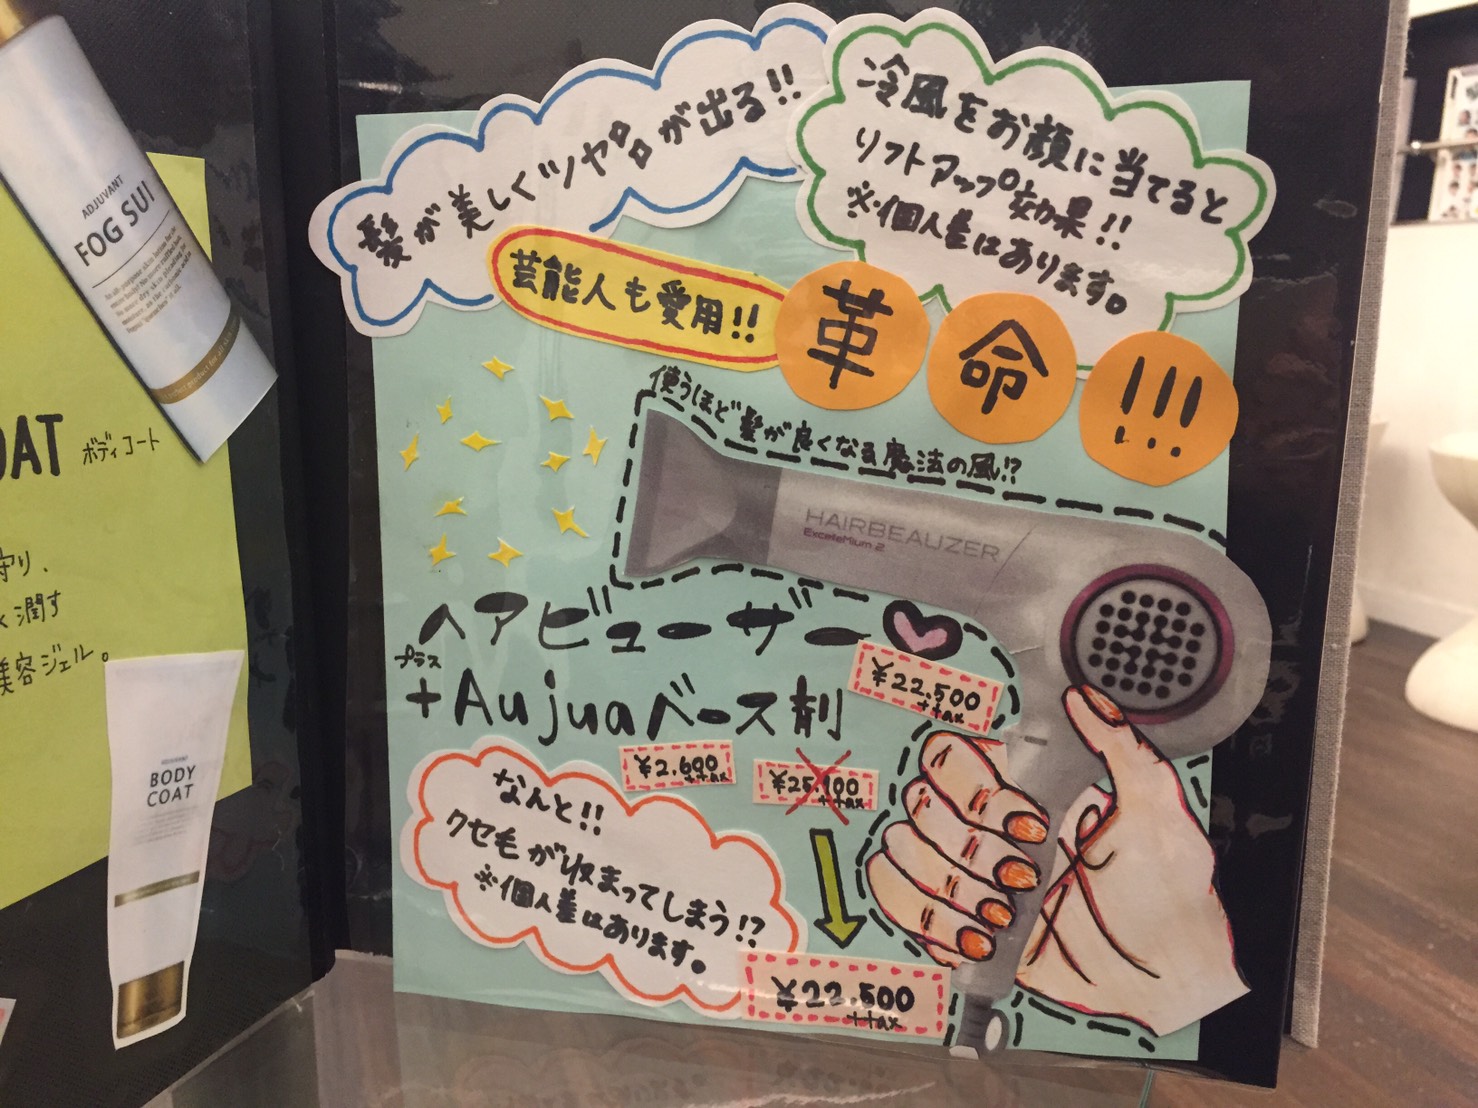 髪が美しくツヤツヤが出る!!
冷風をお顔に当てると
リフトアップ効果!!
※個人差はあります。
芸能人も愛用!!
革命!!!
使うほど髪が良くなる魔法の風!?
HAIRBEAUZER
ExceleMium 2
ヘアビューザー
¥22.500
+tax
プラス
+Aujuaベース剤
¥2.600
+tax
¥25.100
+tax
なんと!!
クセ毛が収まってしまう!?
※個人差はあります。
¥22.500
+tax
ADJUVANT
FOG SUI
OAT ボディコート
守り、
く潤す
美容ジェル。
ADJUVANT
BODY
COAT